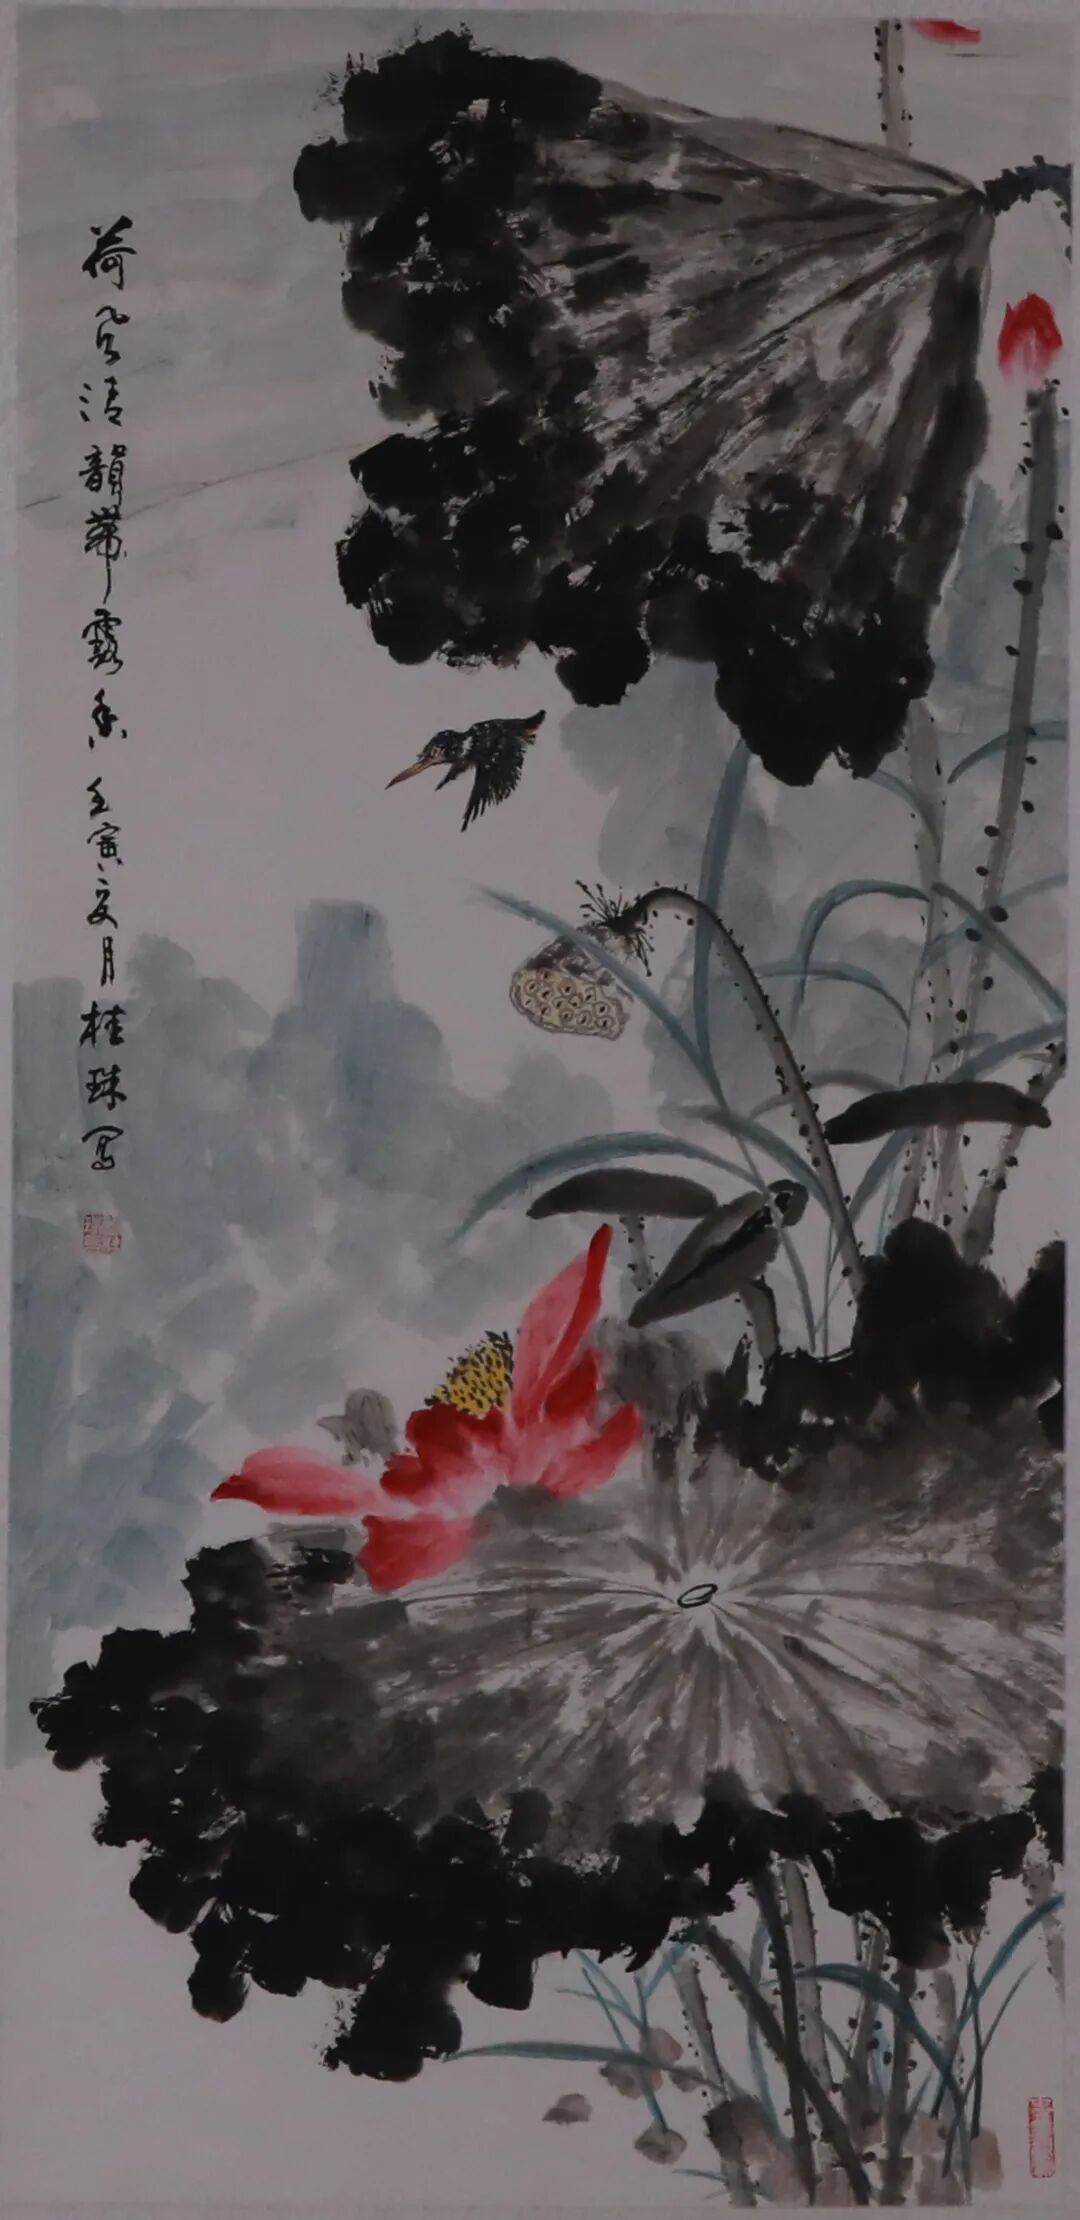 荷风清韻带露香 壬寅夏月桂珠写